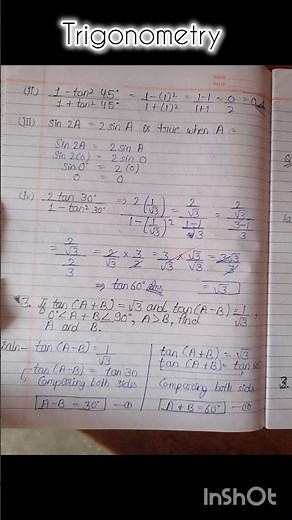 Trigonometry
(II) 1-tan² 45° / 1+tan² 45° = 1-(1)² / 1+(1)² = 1-1 / 1+1 = 0 / 2 = 0
(III) sin 2A = 2 sin A is true when A =
Sin 2A = 2 sin A
Sin 2(0) = 2 sin 0
sin 0° = 2(0)
0 = 0
(iv) 2 tan 30° / 1-tan² 30° ⇒ 2(1/√3) / 1-(1/√3)² = 2/√3 / 1-1/3 = 2/√3 / 3-1/3
= 2/√3 / 2/3 = 2/√3 × 3/2 = 3/√3 × √3/√3 = 3√3/3
⇒ tan 60° Ans = √3
3. If tan (A+B) = √3 and tan (A-B) = 1/√3,
0° < A+B < 90°, A>B, find
A and B.
tan (A-B) = 1/√3
tan (A-B) = tan 30
Comparing both sides
A-B = 30° —(1)
tan (A+B) = √3
tan (A+B) = tan 60
Comparing both sides
A+B = 60° —(1)
3.
InShOt